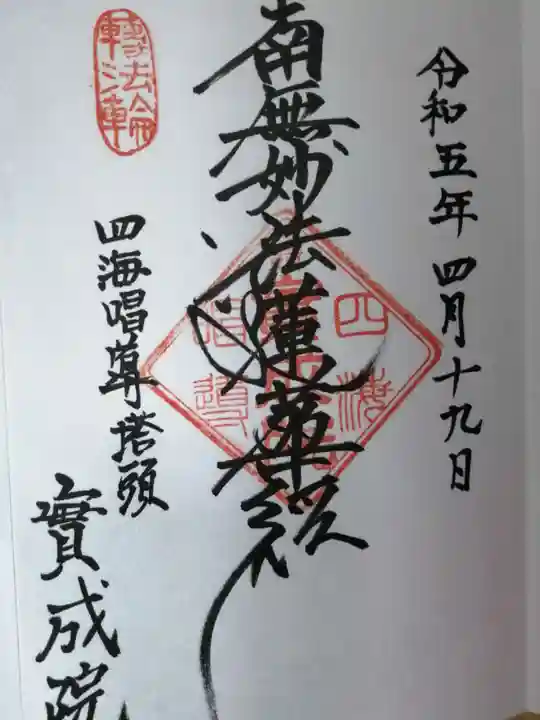 令和五年四月十九日
南無妙法蓮華経
轉法輪
四海
唱導
四海唱導塔頭
實成院